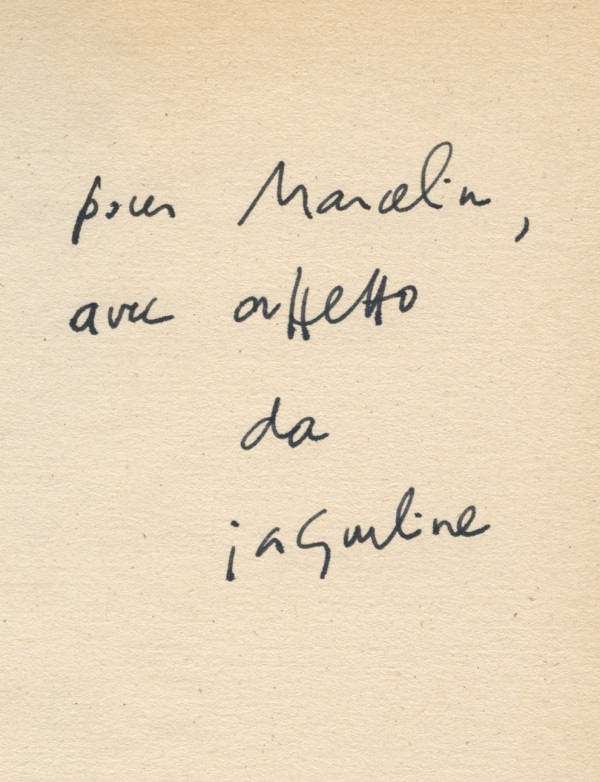 pour Marcelin,
avec affetto
da
jaqueline